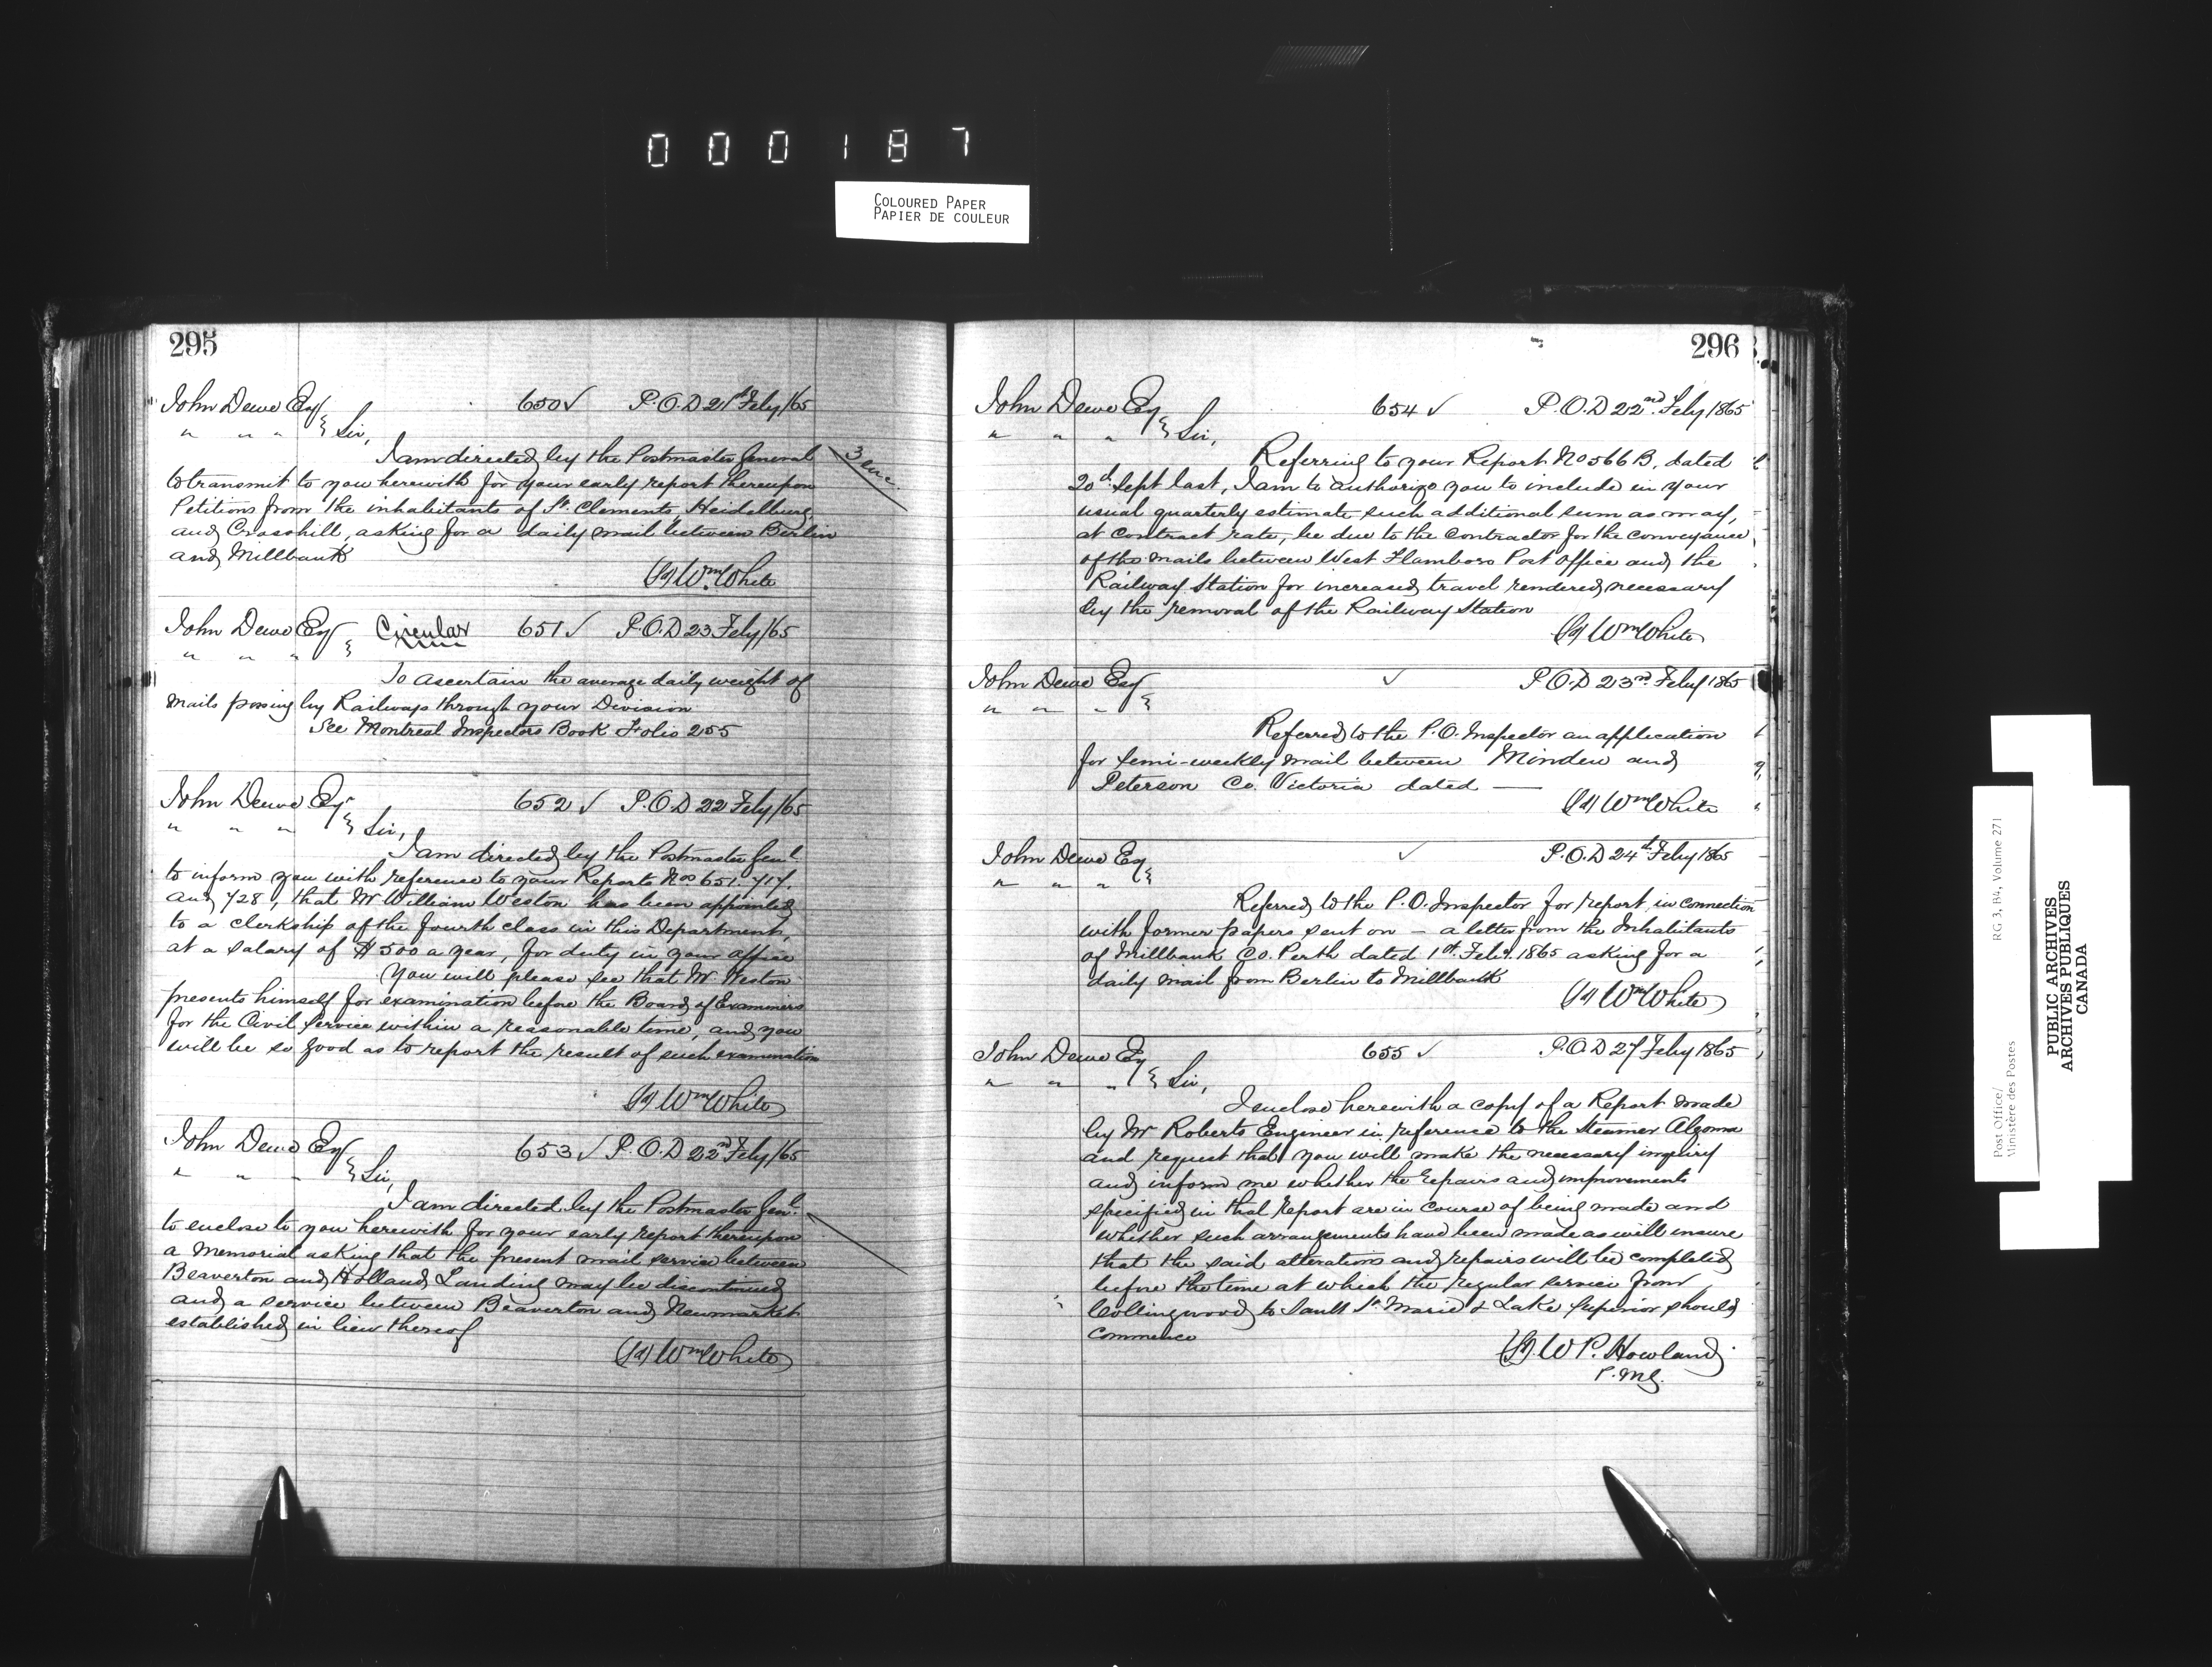 000187
COLOURED PAPER
PAPIER DE COULEUR
295
John Dewe Esq 650 ✓ P.O.D 21st Feby/65
" " " } Sir,
I am directed by the Postmaster General
3 enc.
to transmit to you herewith for your early report thereupon
Petitions from the inhabitants of St. Clements, Heidelburg
and Crosshill, asking for a daily mail between Berlin
and Millbank
(Sd) Wm White
John Dewe Esq Circular 651 ✓ P.O.D 23 Feby/65
" " " }
To ascertain the average daily weight of
mails passing by Railways through your Division
See Montreal Inspectors Book Folio 255
John Dewe Esqr 652 ✓ P.O.D 22 Feby/65
" " " } Sir,
I am directed by the Postmaster Genl.
to inform you with reference to your Reports Nos 651. 717.
and 728, that Mr William Weston has been appointed
to a clerkship of the fourth class in this Department,
at a salary of $500 a year, for duty in your office
You will please see that Mr. Weston
presents himself for examination before the Board of Examiners
for the Civil Service within a reasonable time, and you
will be so good as to report the result of such examination
(Sd) Wm White
John Dewe Esq 653 ✓ P.O.D 22nd Feby/65
" " " } Sir,
I am directed by the Postmaster Genl.
to enclose to you herewith for your early report thereupon
a Memorial asking that the present mail service between
Beaverton and Holland Landing may be discontinued
and a service between Beaverton and Newmarket
established in lieu thereof
(Sd) Wm White
296
John Dewe Esq 654 ✓ P.O.D 22nd Feby 1865
" " " } Sir,
Referring to your Report No 566 B, dated
20th Sept last, I am to authorize you to include in your
usual quarterly estimate such additional sum as may,
at contract rate, be due to the Contractor for the conveyance
of the mails between West Flamboro Post Office and the
Railway Station for increased travel rendered necessary
by the removal of the Railway Station
(Sd) Wm White
John Dewe Esq ✓ P.O.D 23rd Feby 1865
" " " }
Referred to the P.O. Inspector an application
for semi-weekly mail between Minden and
Peterson Co. Victoria dated —
(Sd) Wm White
John Dewe Esq ✓ P.O.D 24th Feby 1865
" " " }
Referred to the P.O. Inspector for report, in connection
with former papers sent on – a letter from the Inhabitants
of Millbank Co. Perth dated 1st Feby. 1865 asking for a
daily mail from Berlin to Millbank
(Sd) Wm White
John Dewe Esq 655 ✓ P.O.D 27 Feby 1865
" " " } Sir,
I enclose herewith a copy of a Report made
by Mr Roberts Engineer in reference to the Steamer Algoma
and request that you will make the necessary inquiry
and inform me whether the repairs and improvements
specified in that Report are in course of being made and
whether such arrangements have been made as will insure
that the said alterations and repairs will be completed
before the time at which the regular service from
Collingwood to Sault St. Marie & Lake Superior should
commence
(Sd) W P. Howland
P.M.G.
Post Office/
Ministère des Postes
RG 3, B4, Volume 271
PUBLIC ARCHIVES
ARCHIVES PUBLIQUES
CANADA